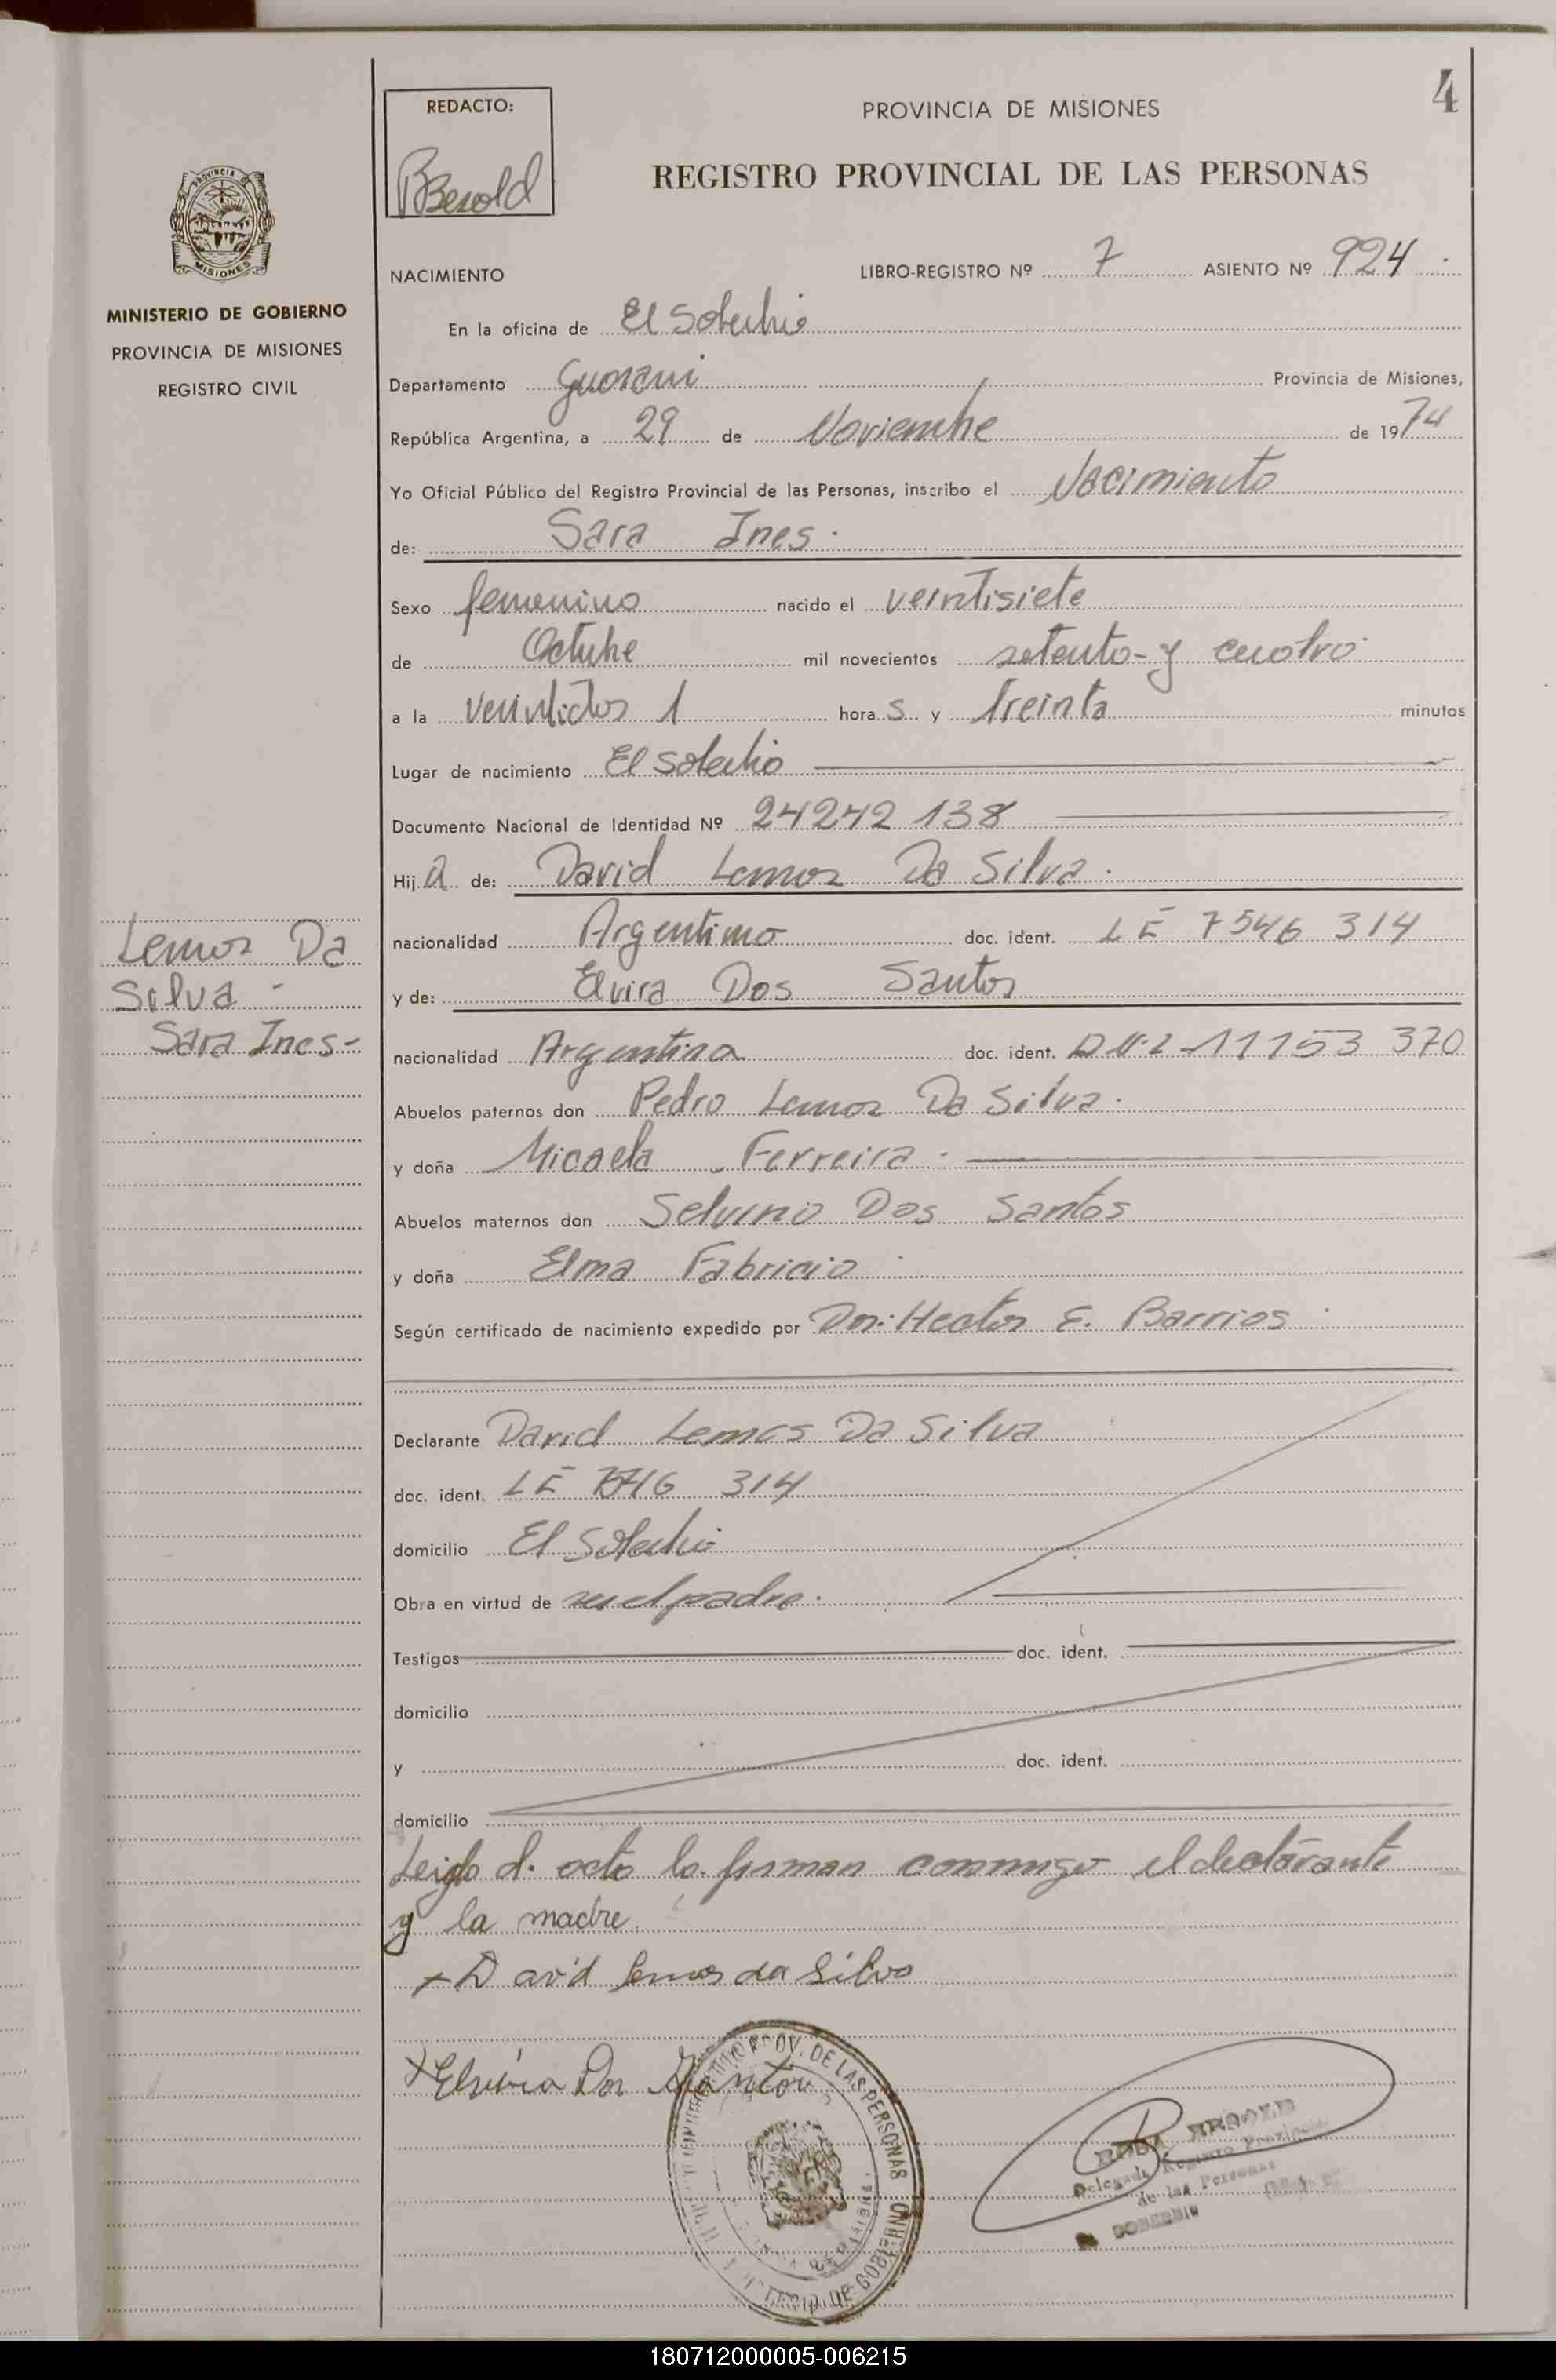 4
REDACTO:
BBesold
PROVINCIA DE MISIONES
REGISTRO PROVINCIAL DE LAS PERSONAS
PROVINCIA
MISIONES
MINISTERIO DE GOBIERNO
PROVINCIA DE MISIONES
REGISTRO CIVIL
NACIMIENTO LIBRO-REGISTRO Nº 7 ASIENTO Nº 924
En la oficina de El Soberbio
Departamento Guarani Provincia de Misiones,
República Argentina, a 29 de Noviembre de 1974
Yo Oficial Público del Registro Provincial de las Personas, inscribo el Nacimiento
de: Sara Ines.
Sexo femenino nacido el veintisiete
de Octubre mil novecientos setenta y cuatro
a la veintidos hora s y treinta minutos
Lugar de nacimiento El Soberbio
Documento Nacional de Identidad Nº 24242 138
Hij a de: David Lemos Da Silva.
nacionalidad Argentino doc. ident. LE 7546 314
y de: Elvira Dos Santos
nacionalidad Argentina doc. ident. DNI 11153 370
Abuelos paternos don Pedro Lemos Da Silva.
y doña Micaela Ferreira.
Abuelos maternos don Selvino Dos Santos
y doña Elma Fabricio
Según certificado de nacimiento expedido por Dr: Hector E. Barrios
Declarante David Lemos Da Silva
doc. ident. LE 314
domicilio El Soberbio
Obra en virtud de ser el padre.
Testigos doc. ident.
domicilio
y doc. ident.
domicilio
Leida el acta la firman conmigo el declarante
y la madre
x David lemos da Silva
x Elvira Dos Santos
Lemos Da
Silva -
Sara Ines-
PROV. DE LAS PERSONAS
Delegada Registro Provincial
de las Personas
SOBERBIO
180712000005-006215